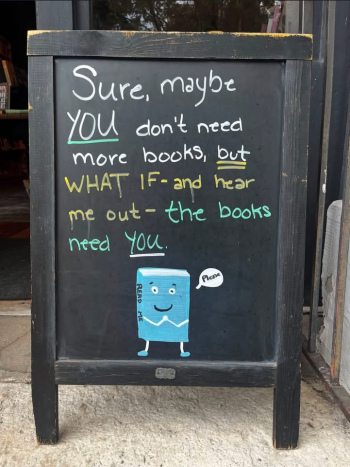 Sure, maybe
YOU don't need
more books, but
WHAT IF - and hear
me out - the books
need YOU.
Please
READ ME